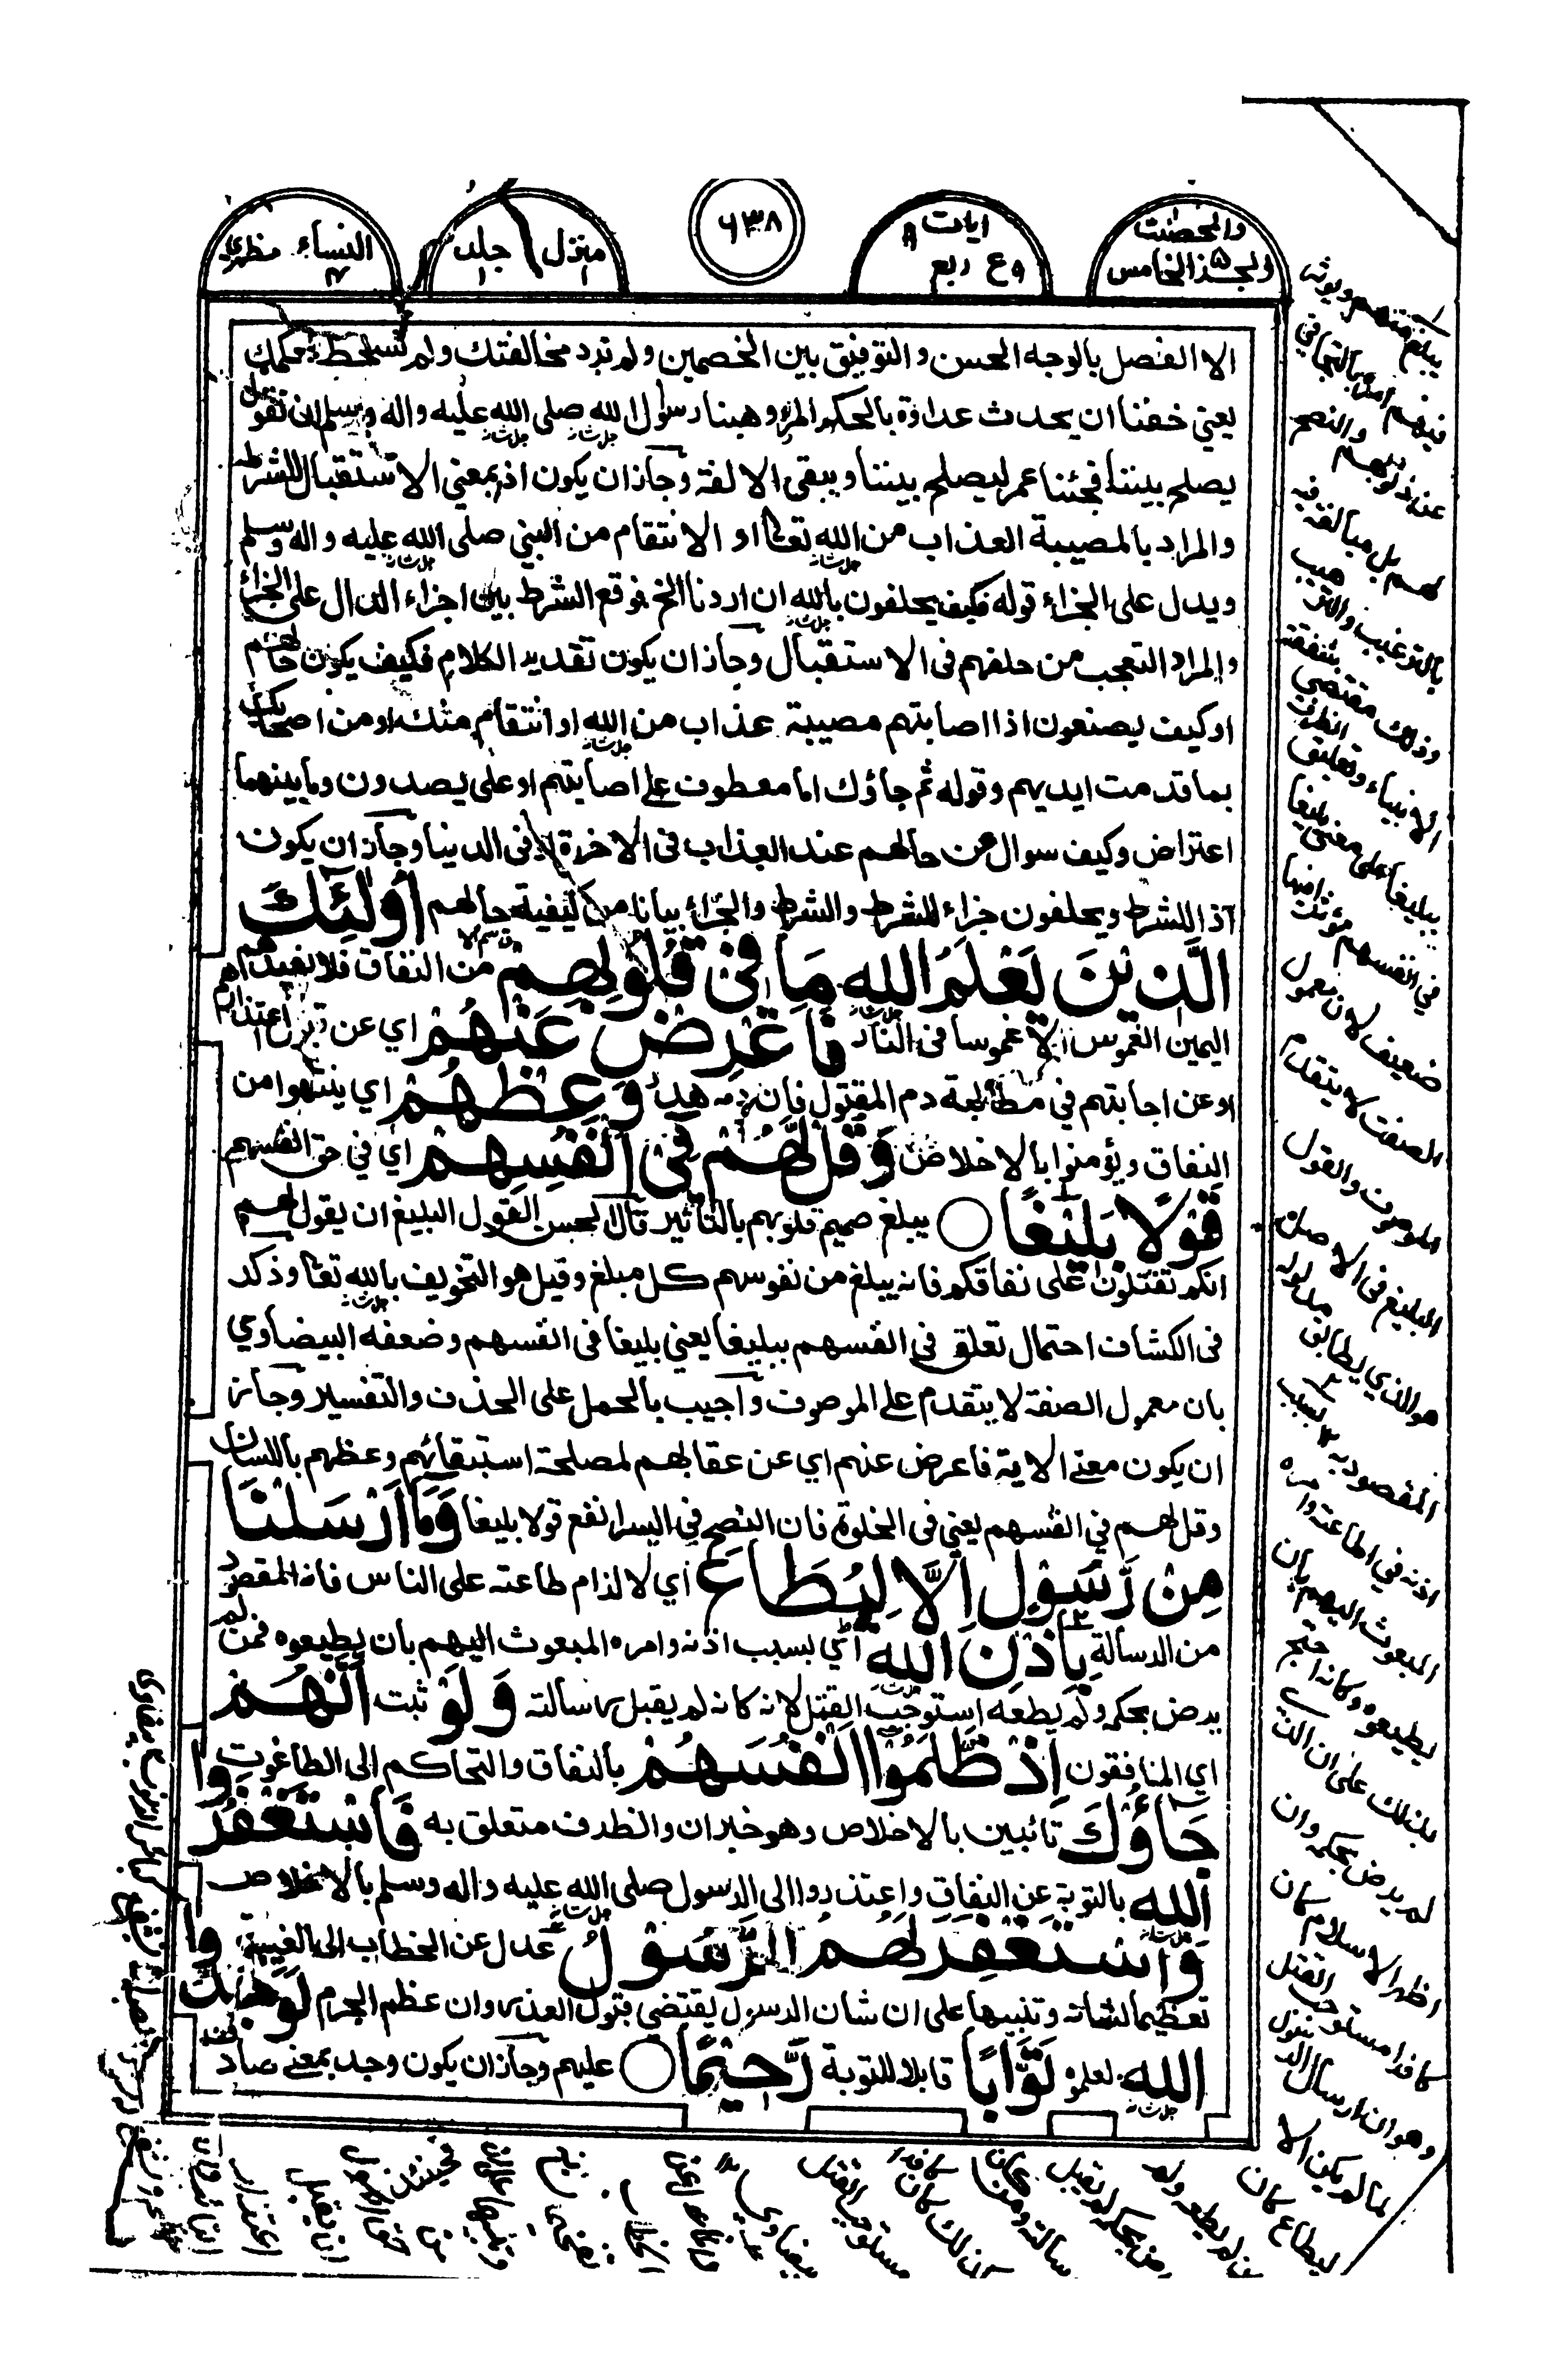 والمحصنت
والجذ الخامس ۵
ايات ۹
ع ربع
۶۳۸
منزل ۱
جلد ۱
النساء ۴
مظهري
الا الفصل بالوجه الحسن والتوفيق بين الخصمين ولم نرد مخالفتك ولم نسخط بحكمك
يعني خفنا ان يحدث عداوة بالحكم المر وهبنا رسول الله صلى الله عليه واله وسلم ان نقول
يصلح بيننا فجئنا عمر ليصلح بيننا ويبقى الالفة وجاز ان يكون اذا بمعنى الاستقبال للشرط
والمراد بالمصيبة العذاب من الله تعالى او الانتقام من النبي صلى الله عليه واله وسلم
ويدل على الجزاء قوله فكيف يحلفون بالله ان اردنا الخ فوقع الشرط بين اجزاء الدال على الجزاء
والمراد التعجب من حلفهم فى الاستقبال وجاز ان يكون تقدير الكلام فكيف يكون حالهم
او كيف يصنعون اذا اصابتهم مصيبة عذاب من الله او انتقام منك او من اصحابك
بما قدمت ايديهم وقوله ثم جاؤك اما معطوف على اصابتهم او على يصدون وما بينهما
اعتراض وكيف سوال من حالهم عند العذاب فى الاخرة او فى الدنيا وجاز ان يكون
اذا للشرط ويحلفون جزاء للشرط والشرط والجزاء بيانا من كيفية حالهم اُولٰٓئِكَ
الَّذِيْنَ يَعْلَمُ اللهُ مَا فِيْ قُلُوْبِهِمْ من النفاق فلا يفيدهم
اليمين الغموس الا غموسا فى النار فَاَعْرِضْ عَنْهُمْ اي عن قبول اعتذارهم
او عن اجابتهم في مطالبة دم المقتول فان دمه هدر وَعِظْهُمْ اي ينتهوا من
النفاق ويؤمنوا بالاخلاص وَقُلْ لَّهُمْ فِيْ اَنْفُسِهِمْ اي في حق انفسهم
قَوْلًا بَلِيْغًا ○ يبلغ صميم قلوبهم بالتاثير قال الحسن القول البليغ ان يقول لهم
انكم تقتلون على نفاقكم فانه يبلغ من نفوسهم كل مبلغ وقيل هو التخويف بالله تعالى وذكر
فى الكشاف احتمال تعلق في انفسهم ببليغا يعني بليغا فى انفسهم وضعفه البيضاوي
بان معمول الصفة لا يتقدم على الموصوف واجيب بالحمل على الحذف والتفسير وجاز
ان يكون معنى الاية فاعرض عنهم اي عن عقابهم لمصلحة استبقائهم وعظهم باللسان
وقل لهم في انفسهم يعني فى الخلوة فان النصح في السر انفع قولا بليغا وَمَا اَرْسَلْنَا
مِنْ رَّسُوْلٍ اِلَّا لِيُطَاعَ اي لا لزام طاعته على الناس فانه المقصود
من الرسالة بِاِذْنِ اللهِ اي بسبب اذنه وامره المبعوث اليهم بان يطيعوه فمن لم
يرض بحكمه ولم يطعه استوجب القتل لانه كانه لم يقبل رسالته وَلَوْ ثبت اَنَّهُمْ
اي المنافقون اِذْ ظَّلَمُوْٓا اَنْفُسَهُمْ بالنفاق والتحاكم الى الطاغوت
جَآءُوْكَ تائبين بالاخلاص وهو خبر ان والظرف متعلق به فَاسْتَغْفَرُوا
اللهَ بالتوبة عن النفاق واعتذروا الى الرسول صلى الله عليه واله وسلم بالاخلاص
وَاسْتَغْفَرَ لَهُمُ الرَّسُوْلُ عدل عن الخطاب الى الغيبة
تعظيما لشانه وتنبيها على ان شان الرسول يقتضي قبول العذر وان عظم الجرم لَوَجَدُوا
اللهَ لعلموه تَوَّابًا قابلا للتوبة رَّحِيْمًا ○ عليهم وجاز ان يكون وجد بمعنى صادف
فيهم
والنصح
عند ذنوبهم
لهم بل مبالغة فيه
بالترغيب والترهيب
وذلك مقتضي
الانبياء وتعليق الظرف
ببليغا على معنى بليغا
في انفسهم مؤثرا فيها
ضعيف لان معمول
الصفت لا يتقدم
الموصوف والقول
البليغ فى الاصل
هو الذي يطابق مدلوله
المقصود به
بسبب
اذنه في اطاعته وامره
المبعوث اليهم بان
يطيعوه وكانه احتج
بذلك على ان الذي
لم يرض بحكمه وان
اظهر الاسلام كان
كافرا مستوجب القتل
وهو ان ارسال الرسول
لما لم يكن الا
ليطاع كان